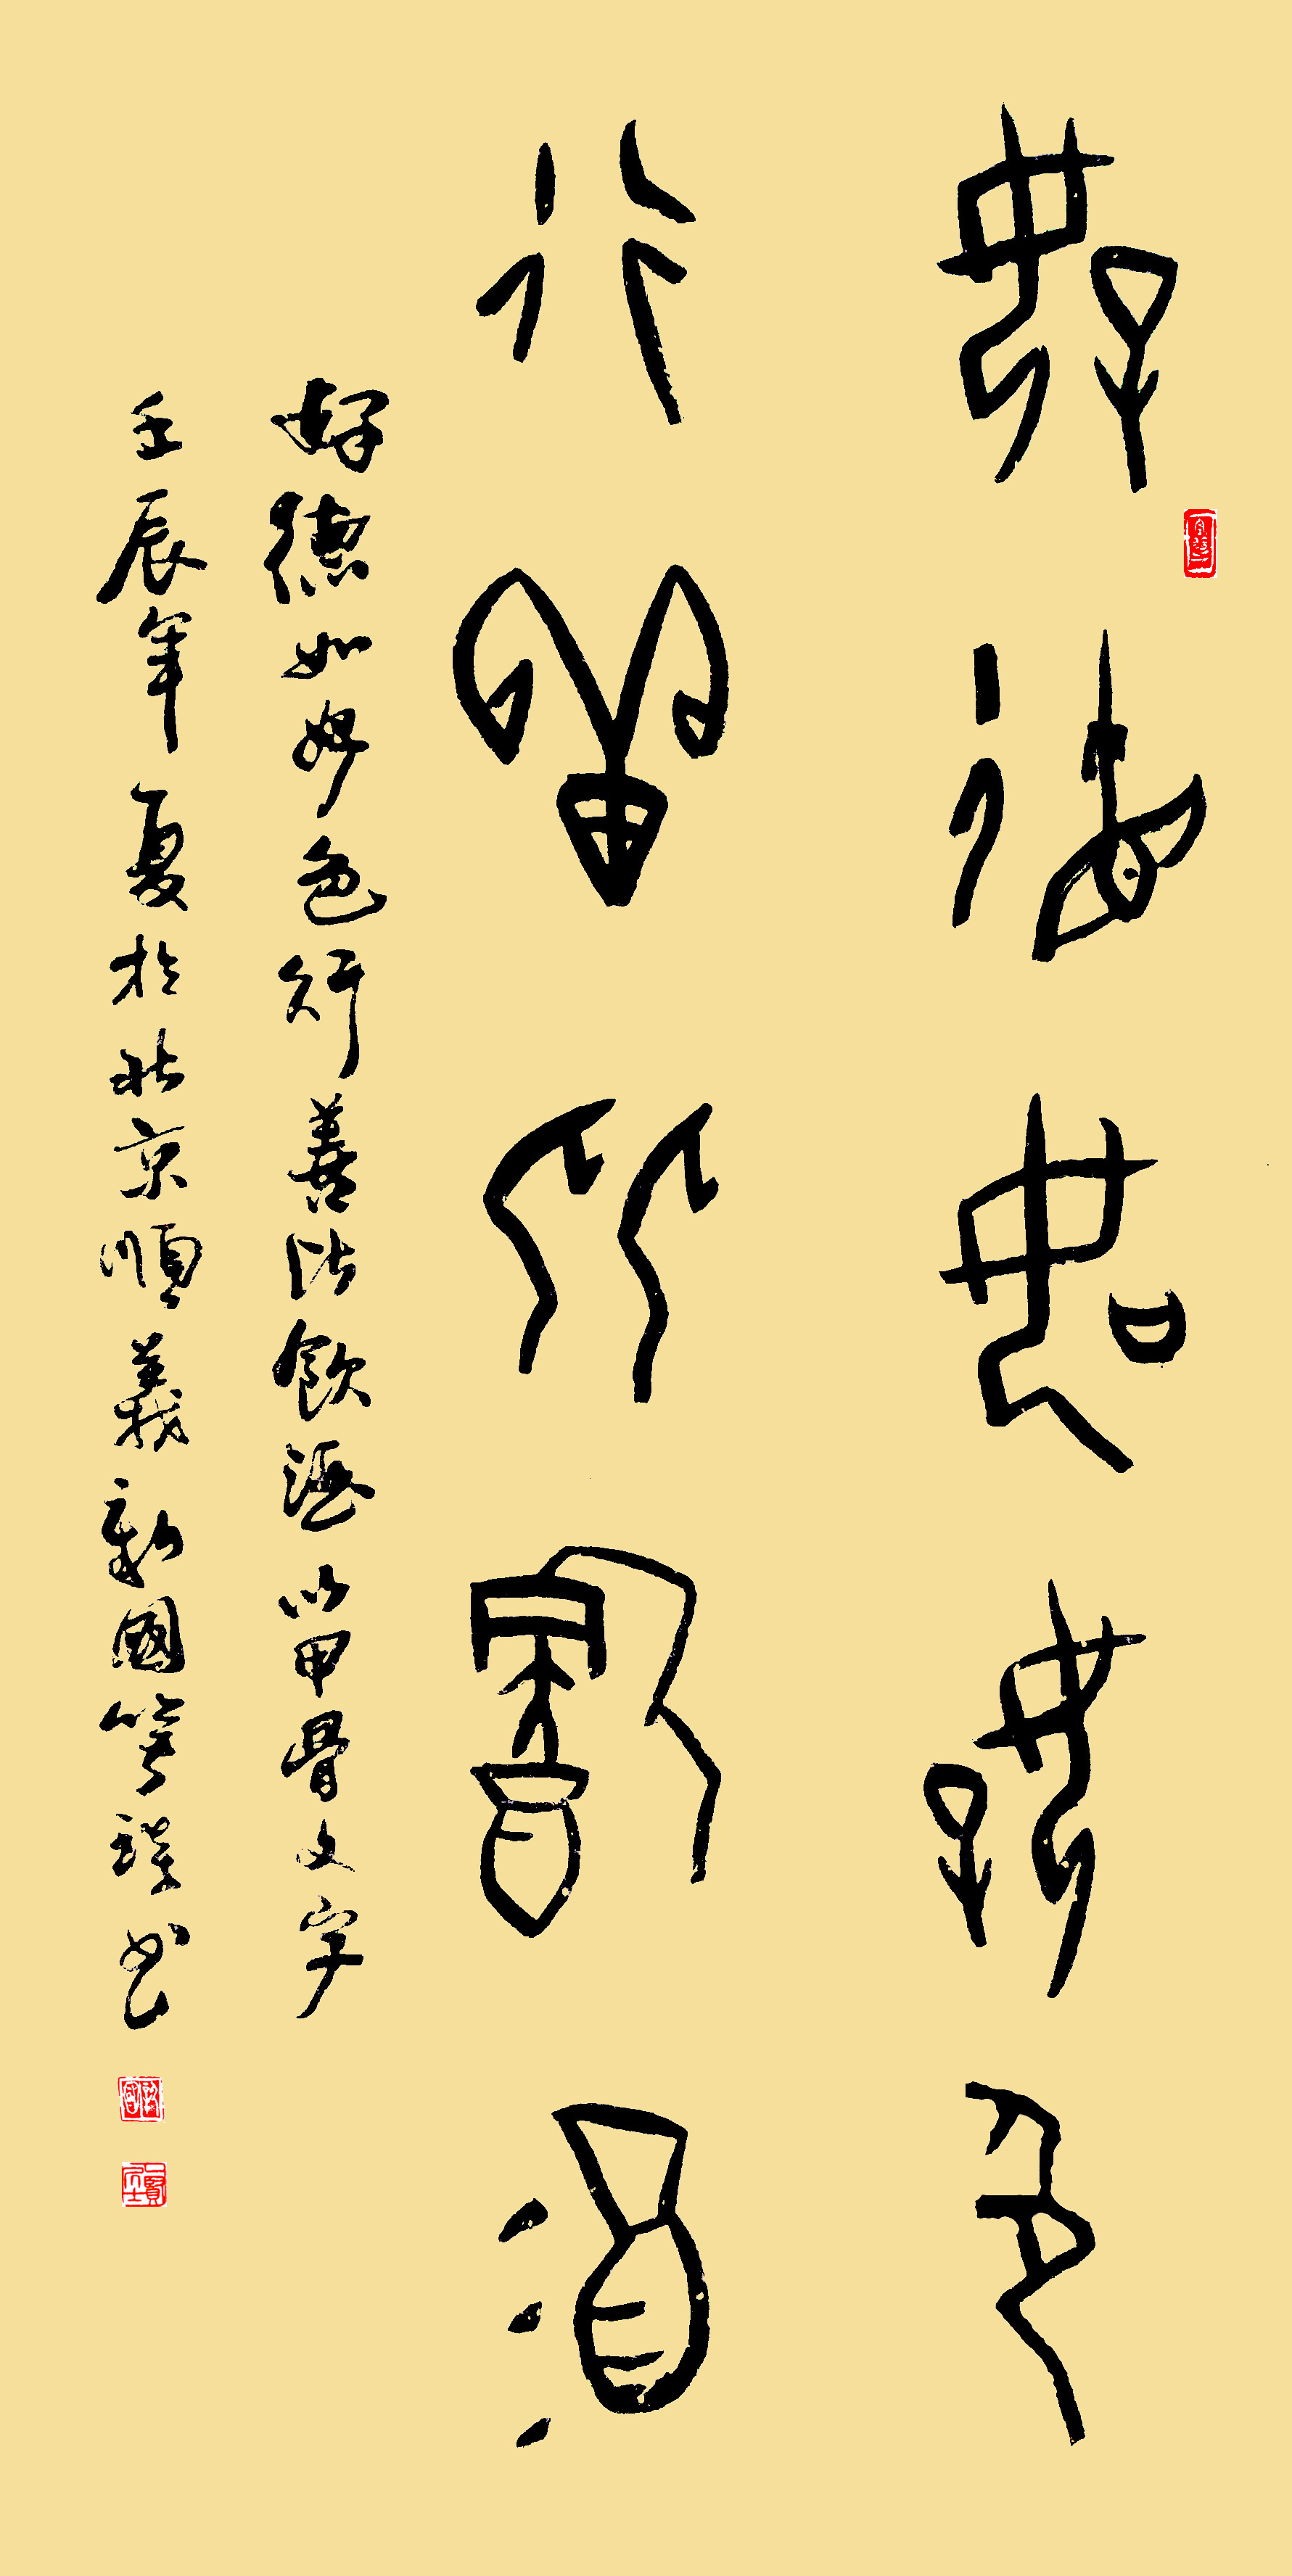 好德如好色
行善比飲酒
好德如好色行善比飲酒以甲骨文字
壬辰年夏於北京順義新國箏瑛书